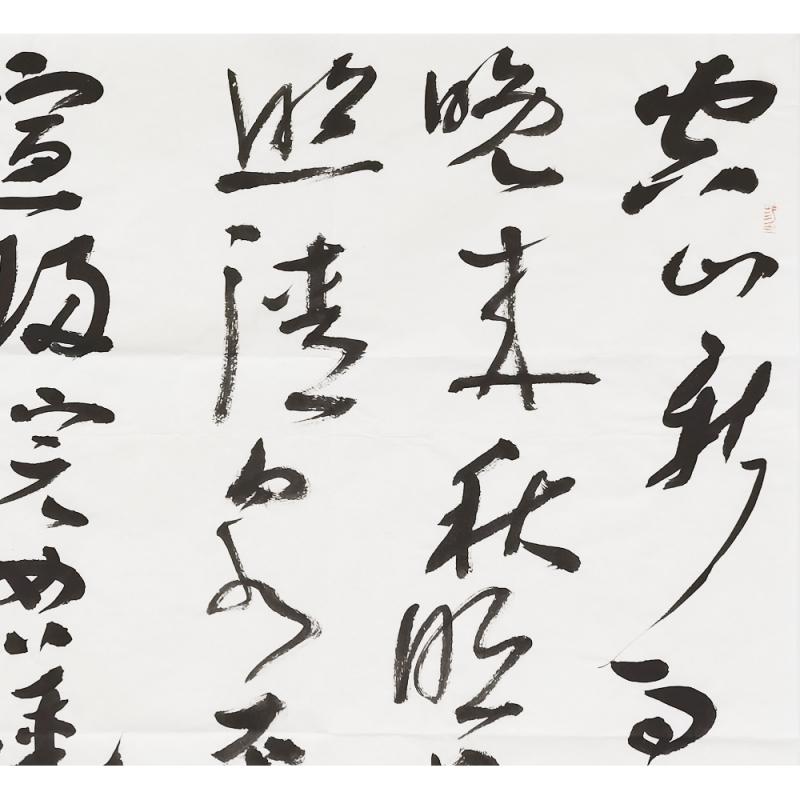 空山新雨
晚来秋明
照清泉石
喧歸浣女蓮